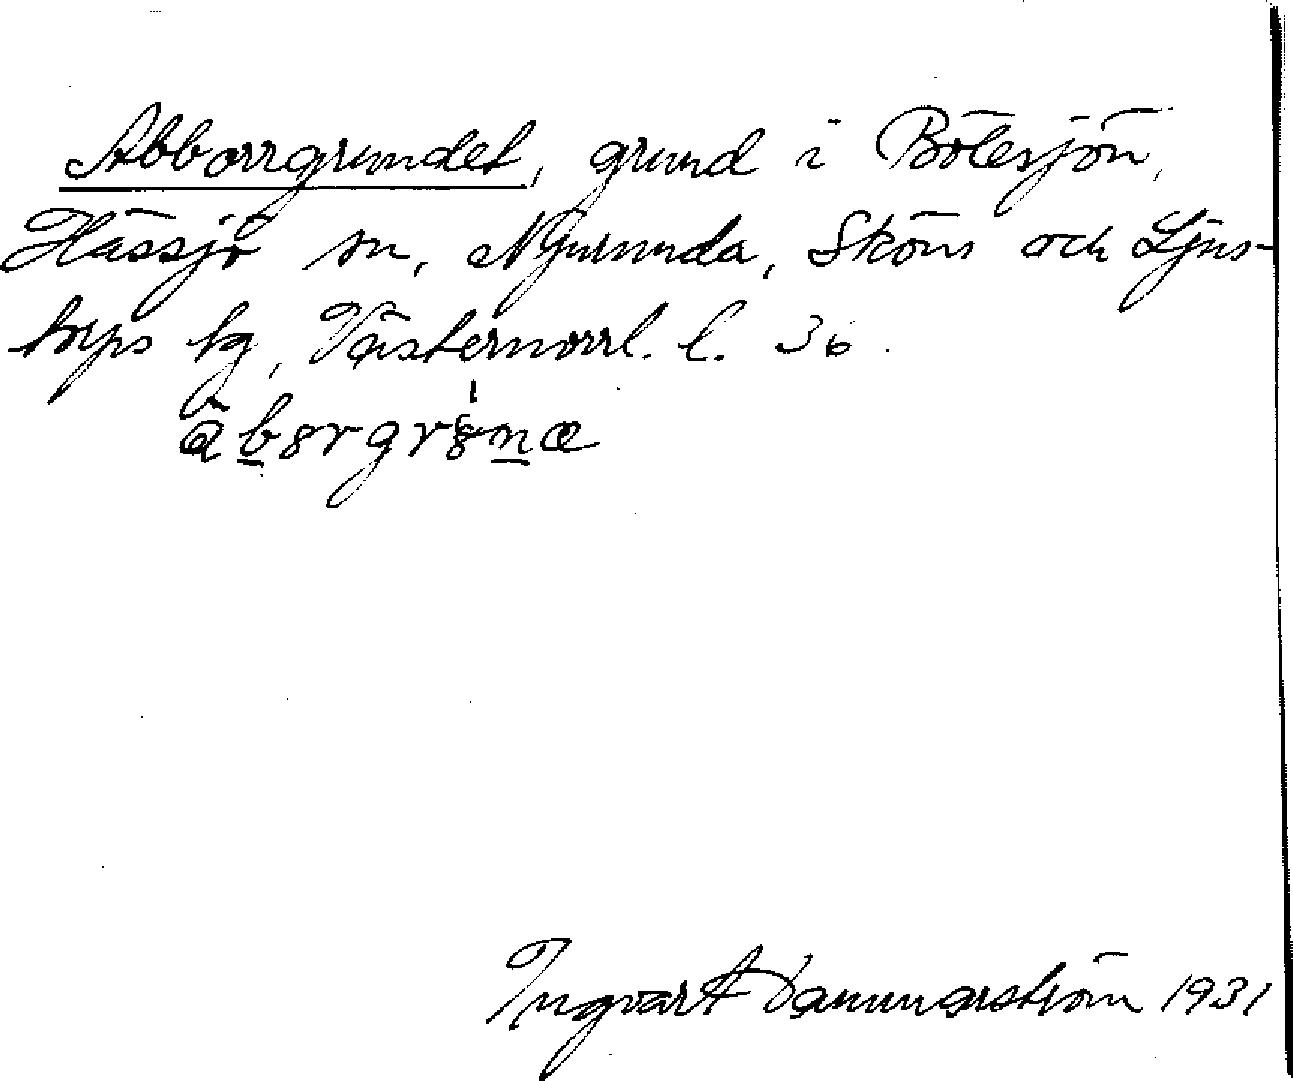 Abborrgrundet, grund i Bölesjön,
Hässjö sn, Njurunda, Sköns och Ljus-
torps tg, Västernorrl. l. 36.
Ingvart Dammarström 1931